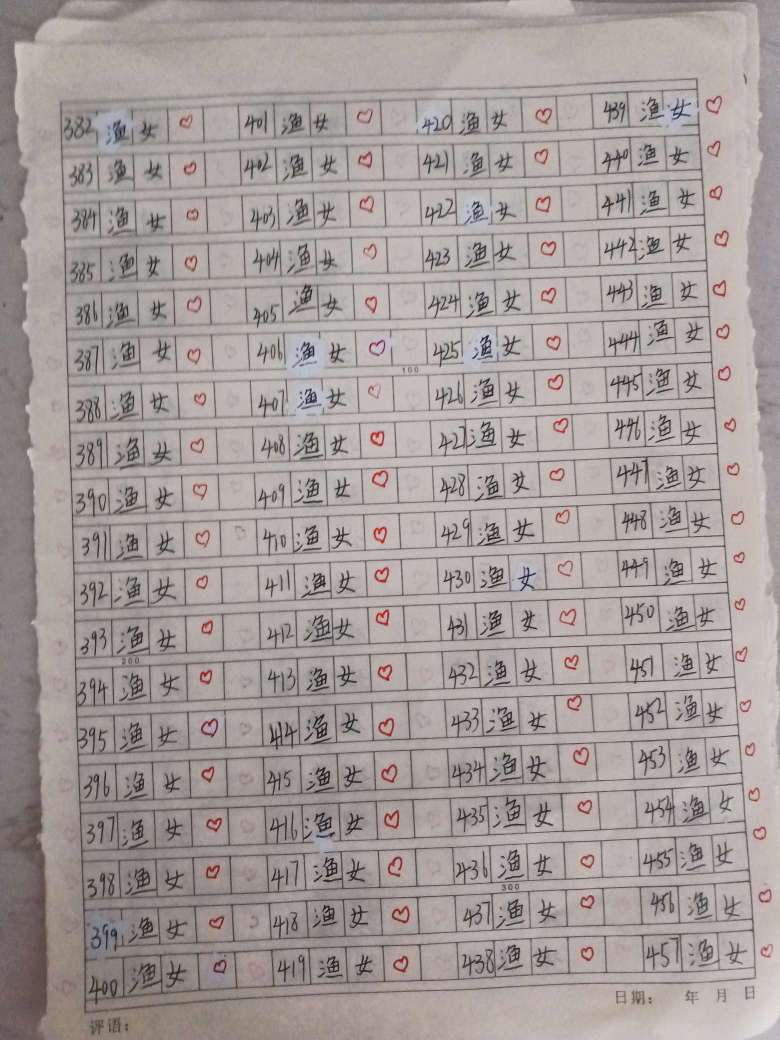 382 渔女 ♡ 401 渔女 ♡ 420 渔女 ♡ 439 渔女 ♡
383 渔女 ♡ 402 渔女 ♡ 421 渔女 ♡ 440 渔女 ♡
384 渔女 ♡ 403 渔女 ♡ 422 渔女 ♡ 441 渔女 ♡
385 渔女 ♡ 404 渔女 ♡ 423 渔女 ♡ 442 渔女 ♡
386 渔女 ♡ 405 渔女 ♡ 424 渔女 ♡ 443 渔女 ♡
387 渔女 ♡ 406 渔女 ♡ 425 渔女 ♡ 444 渔女 ♡
100
388 渔女 ♡ 407 渔女 ♡ 426 渔女 ♡ 445 渔女 ♡
389 渔女 ♡ 408 渔女 ♡ 427 渔女 ♡ 446 渔女 ♡
390 渔女 ♡ 409 渔女 ♡ 428 渔女 ♡ 447 渔女 ♡
391 渔女 ♡ 410 渔女 ♡ 429 渔女 ♡ 448 渔女 ♡
392 渔女 ♡ 411 渔女 ♡ 430 渔女 ♡ 449 渔女 ♡
393 渔女 ♡ 412 渔女 ♡ 431 渔女 ♡ 450 渔女 ♡
200
394 渔女 ♡ 413 渔女 ♡ 432 渔女 ♡ 451 渔女 ♡
395 渔女 ♡ 414 渔女 ♡ 433 渔女 ♡ 452 渔女 ♡
396 渔女 ♡ 415 渔女 ♡ 434 渔女 ♡ 453 渔女 ♡
397 渔女 ♡ 416 渔女 ♡ 435 渔女 ♡ 454 渔女 ♡
398 渔女 ♡ 417 渔女 ♡ 436 渔女 ♡ 455 渔女 ♡
300
399 渔女 ♡ 418 渔女 ♡ 437 渔女 ♡ 456 渔女 ♡
400 渔女 ♡ 419 渔女 ♡ 438 渔女 ♡ 457 渔女 ♡
日期： 年 月 日
评语：